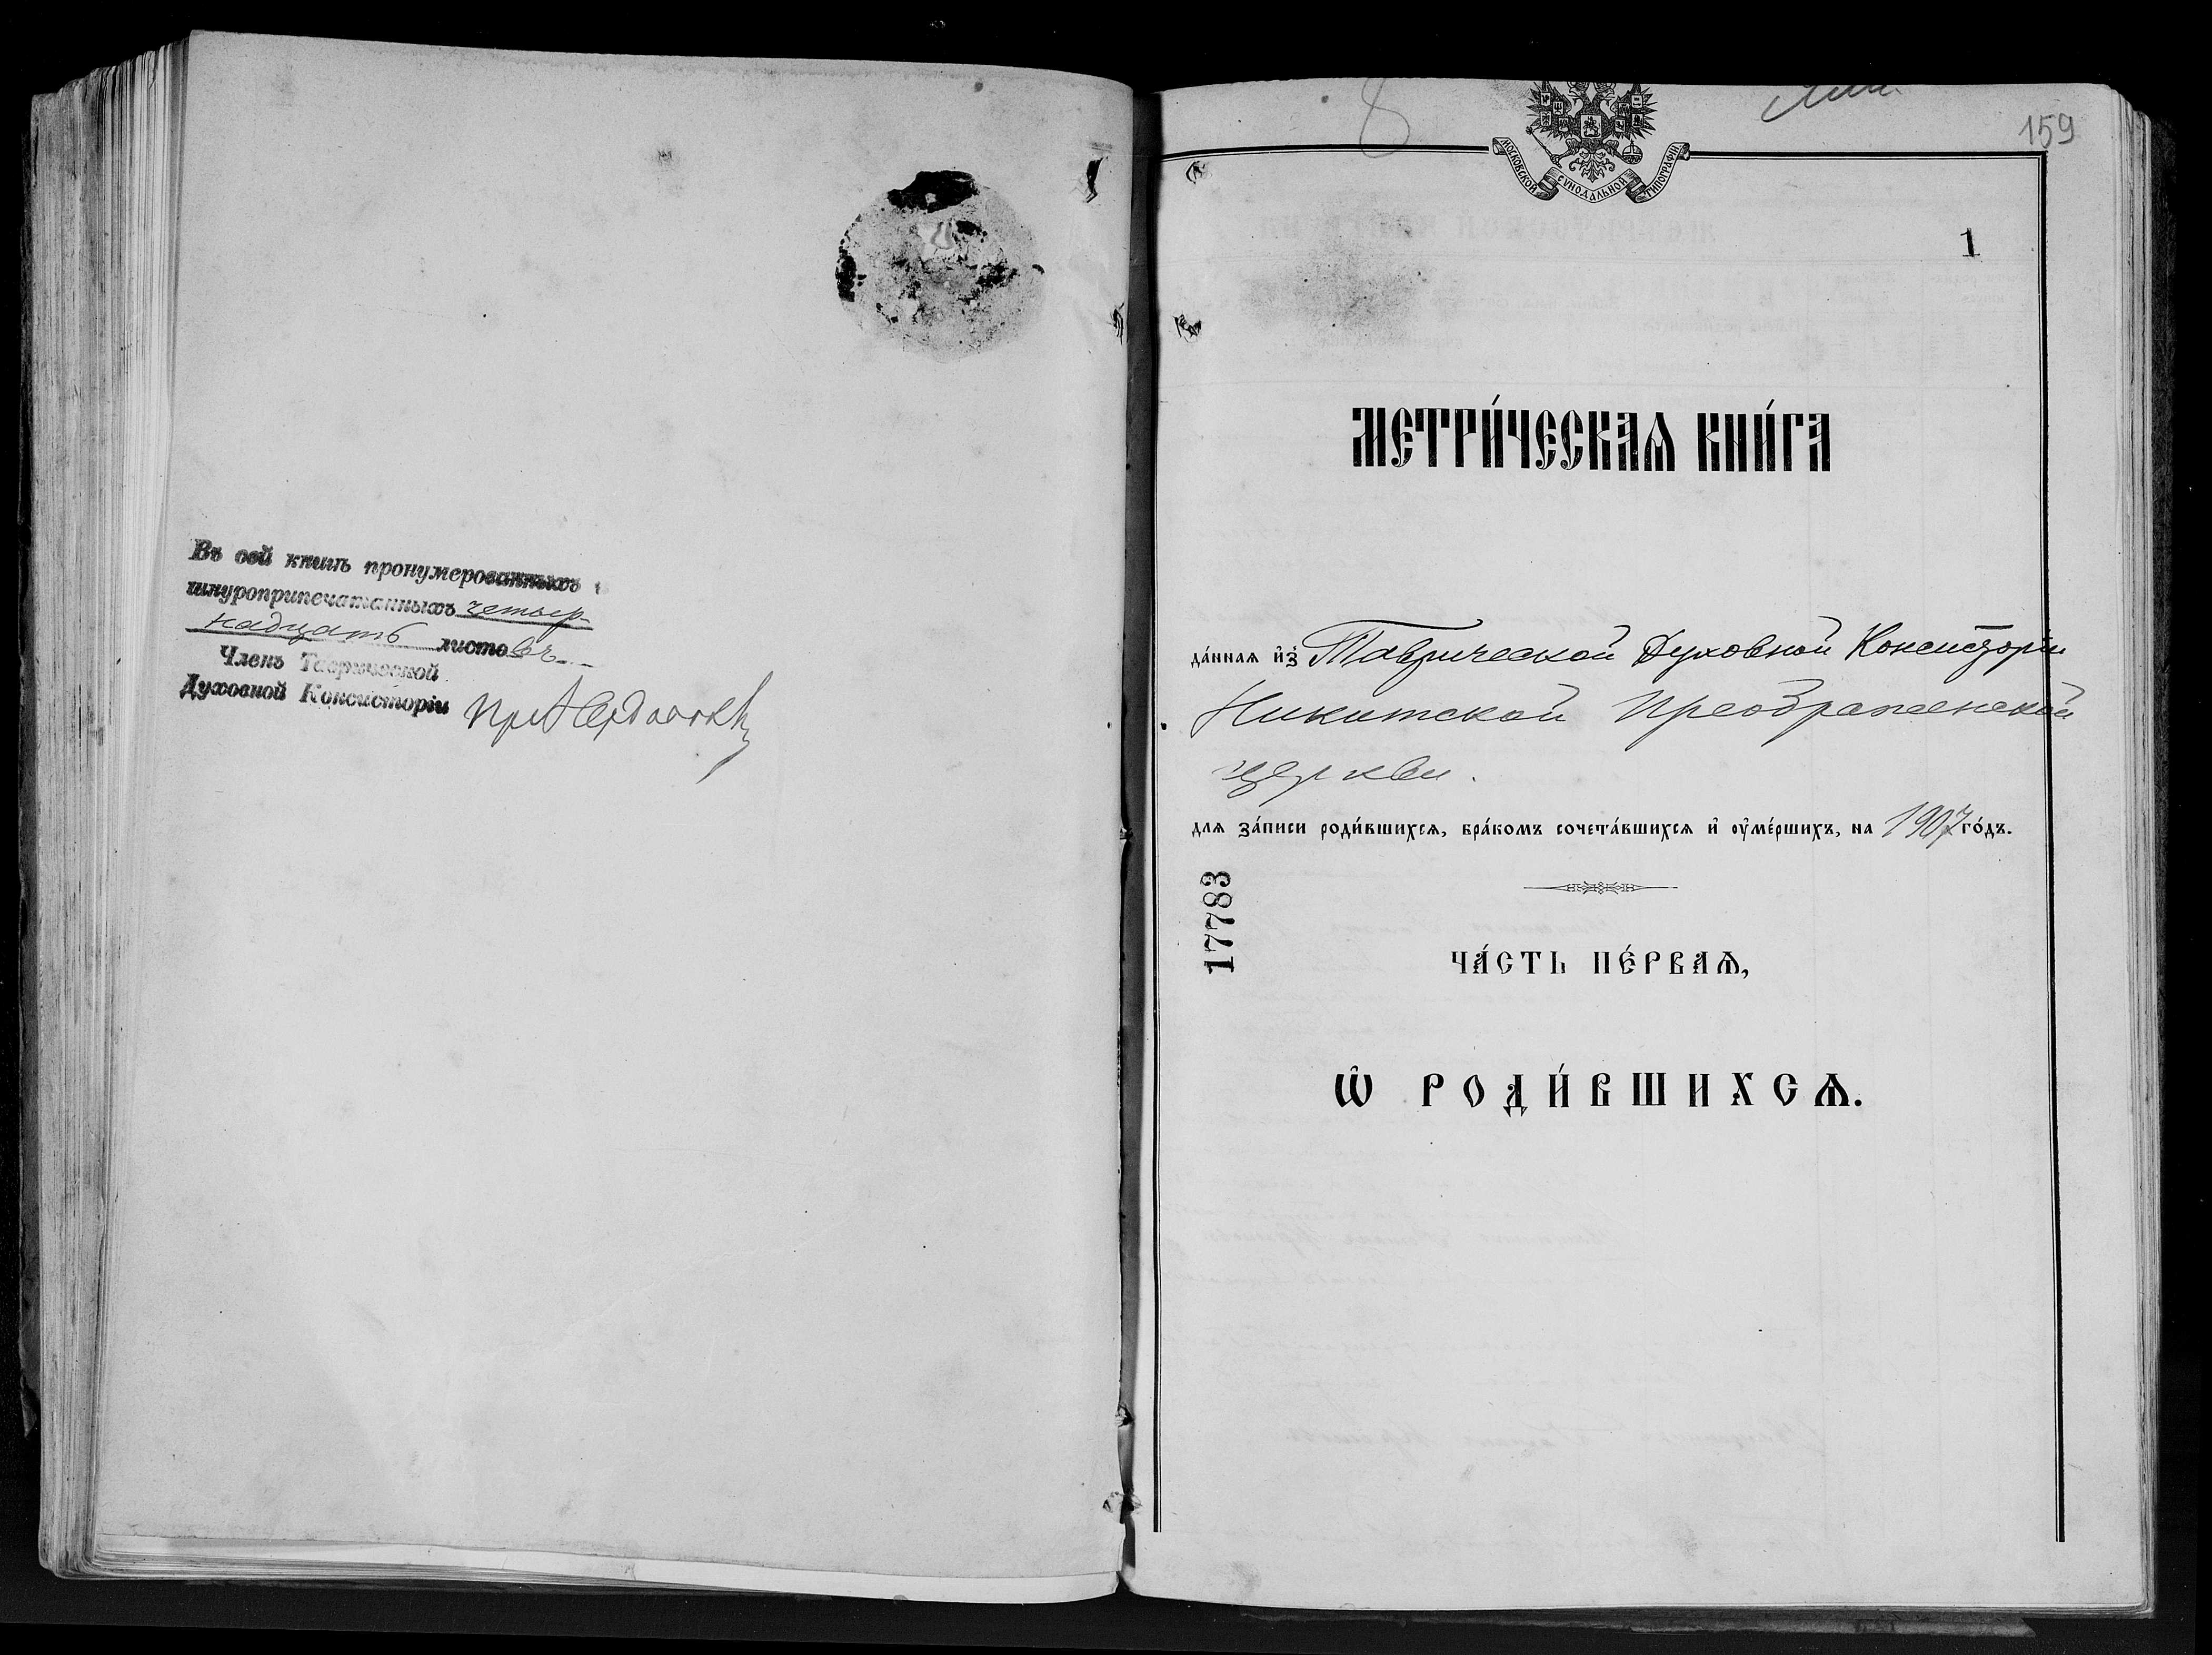 Въ сей книгѣ пронумерованныхъ
шнуроприпечатанныхъ четыр-
надцать листовъ
Членъ Таврической
Духовной Консисторіи
8
159
МОСКОВСКОЙ СѴНОДАЛЬНОЙ ТИПОГРАФІИ
1
МЕТРИ́ЧЕСКАѦ КНИ́ГА
да́ннаѧ и҆з̾ Таврической Духовной Консисторіи
Никитской Преображенской
церкви.
длѧ за́писи роди́вшихсѧ, бра́комъ сочета́вшихсѧ и҆ оу҆ме́ршихъ, на 1907 го́дъ.
17783
ЧА́СТЬ ПЕ́РВАѦ,
Ѡ҆ РОДИ́ВШИХСѦ.